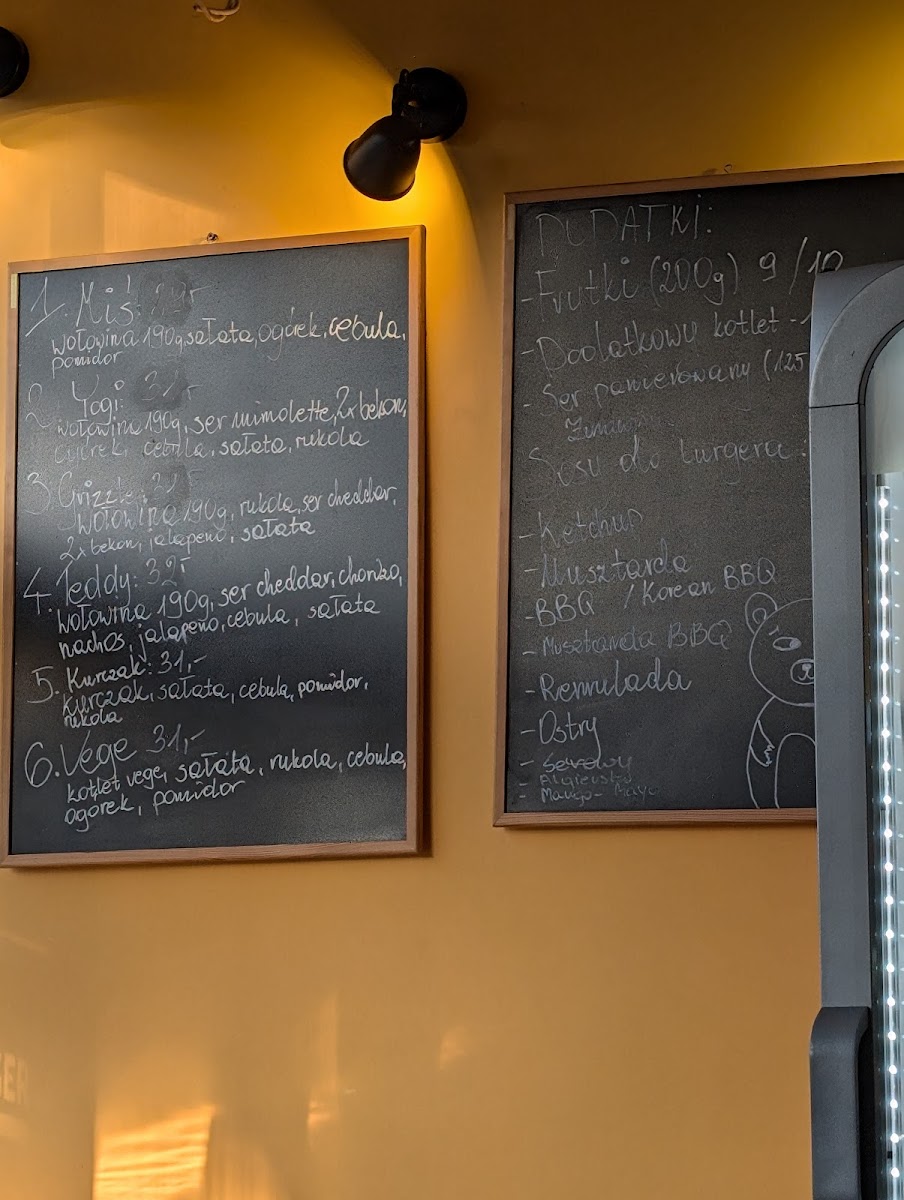 1. Miś:
wołowina 190g, sałata, ogórek, cebula,
pomidor
2. Yogi: 31,-
wołowina 190g, ser mimolette, 2x bekon,
ogórek, cebula, sałata, rukola
3. Grizzle: 31,-
wołowina 190g, rukola, ser cheddar,
2x bekon, jalapeño, sałata
4. Teddy: 32,-
wołowina 190g, ser cheddar, chorizo,
nachos, jalapeño, cebula, sałata
5. Kurczak: 31,-
kurczak, sałata, cebula, pomidor,
rukola
6. Vege 31,-
kotlet vege, sałata, rukola, cebula,
ogórek, pomidor
DODATKI:
- Frytki (200g) 9/10
- Dodatkowy kotlet -
- Ser panierowany (125
Sosy do burgera:
- Ketchup
- Musztarda
- BBQ / Korean BBQ
- Musztarda BBQ
- Remulada
- Ostry
- Serowy
- Algierski
- Mango-Mayo